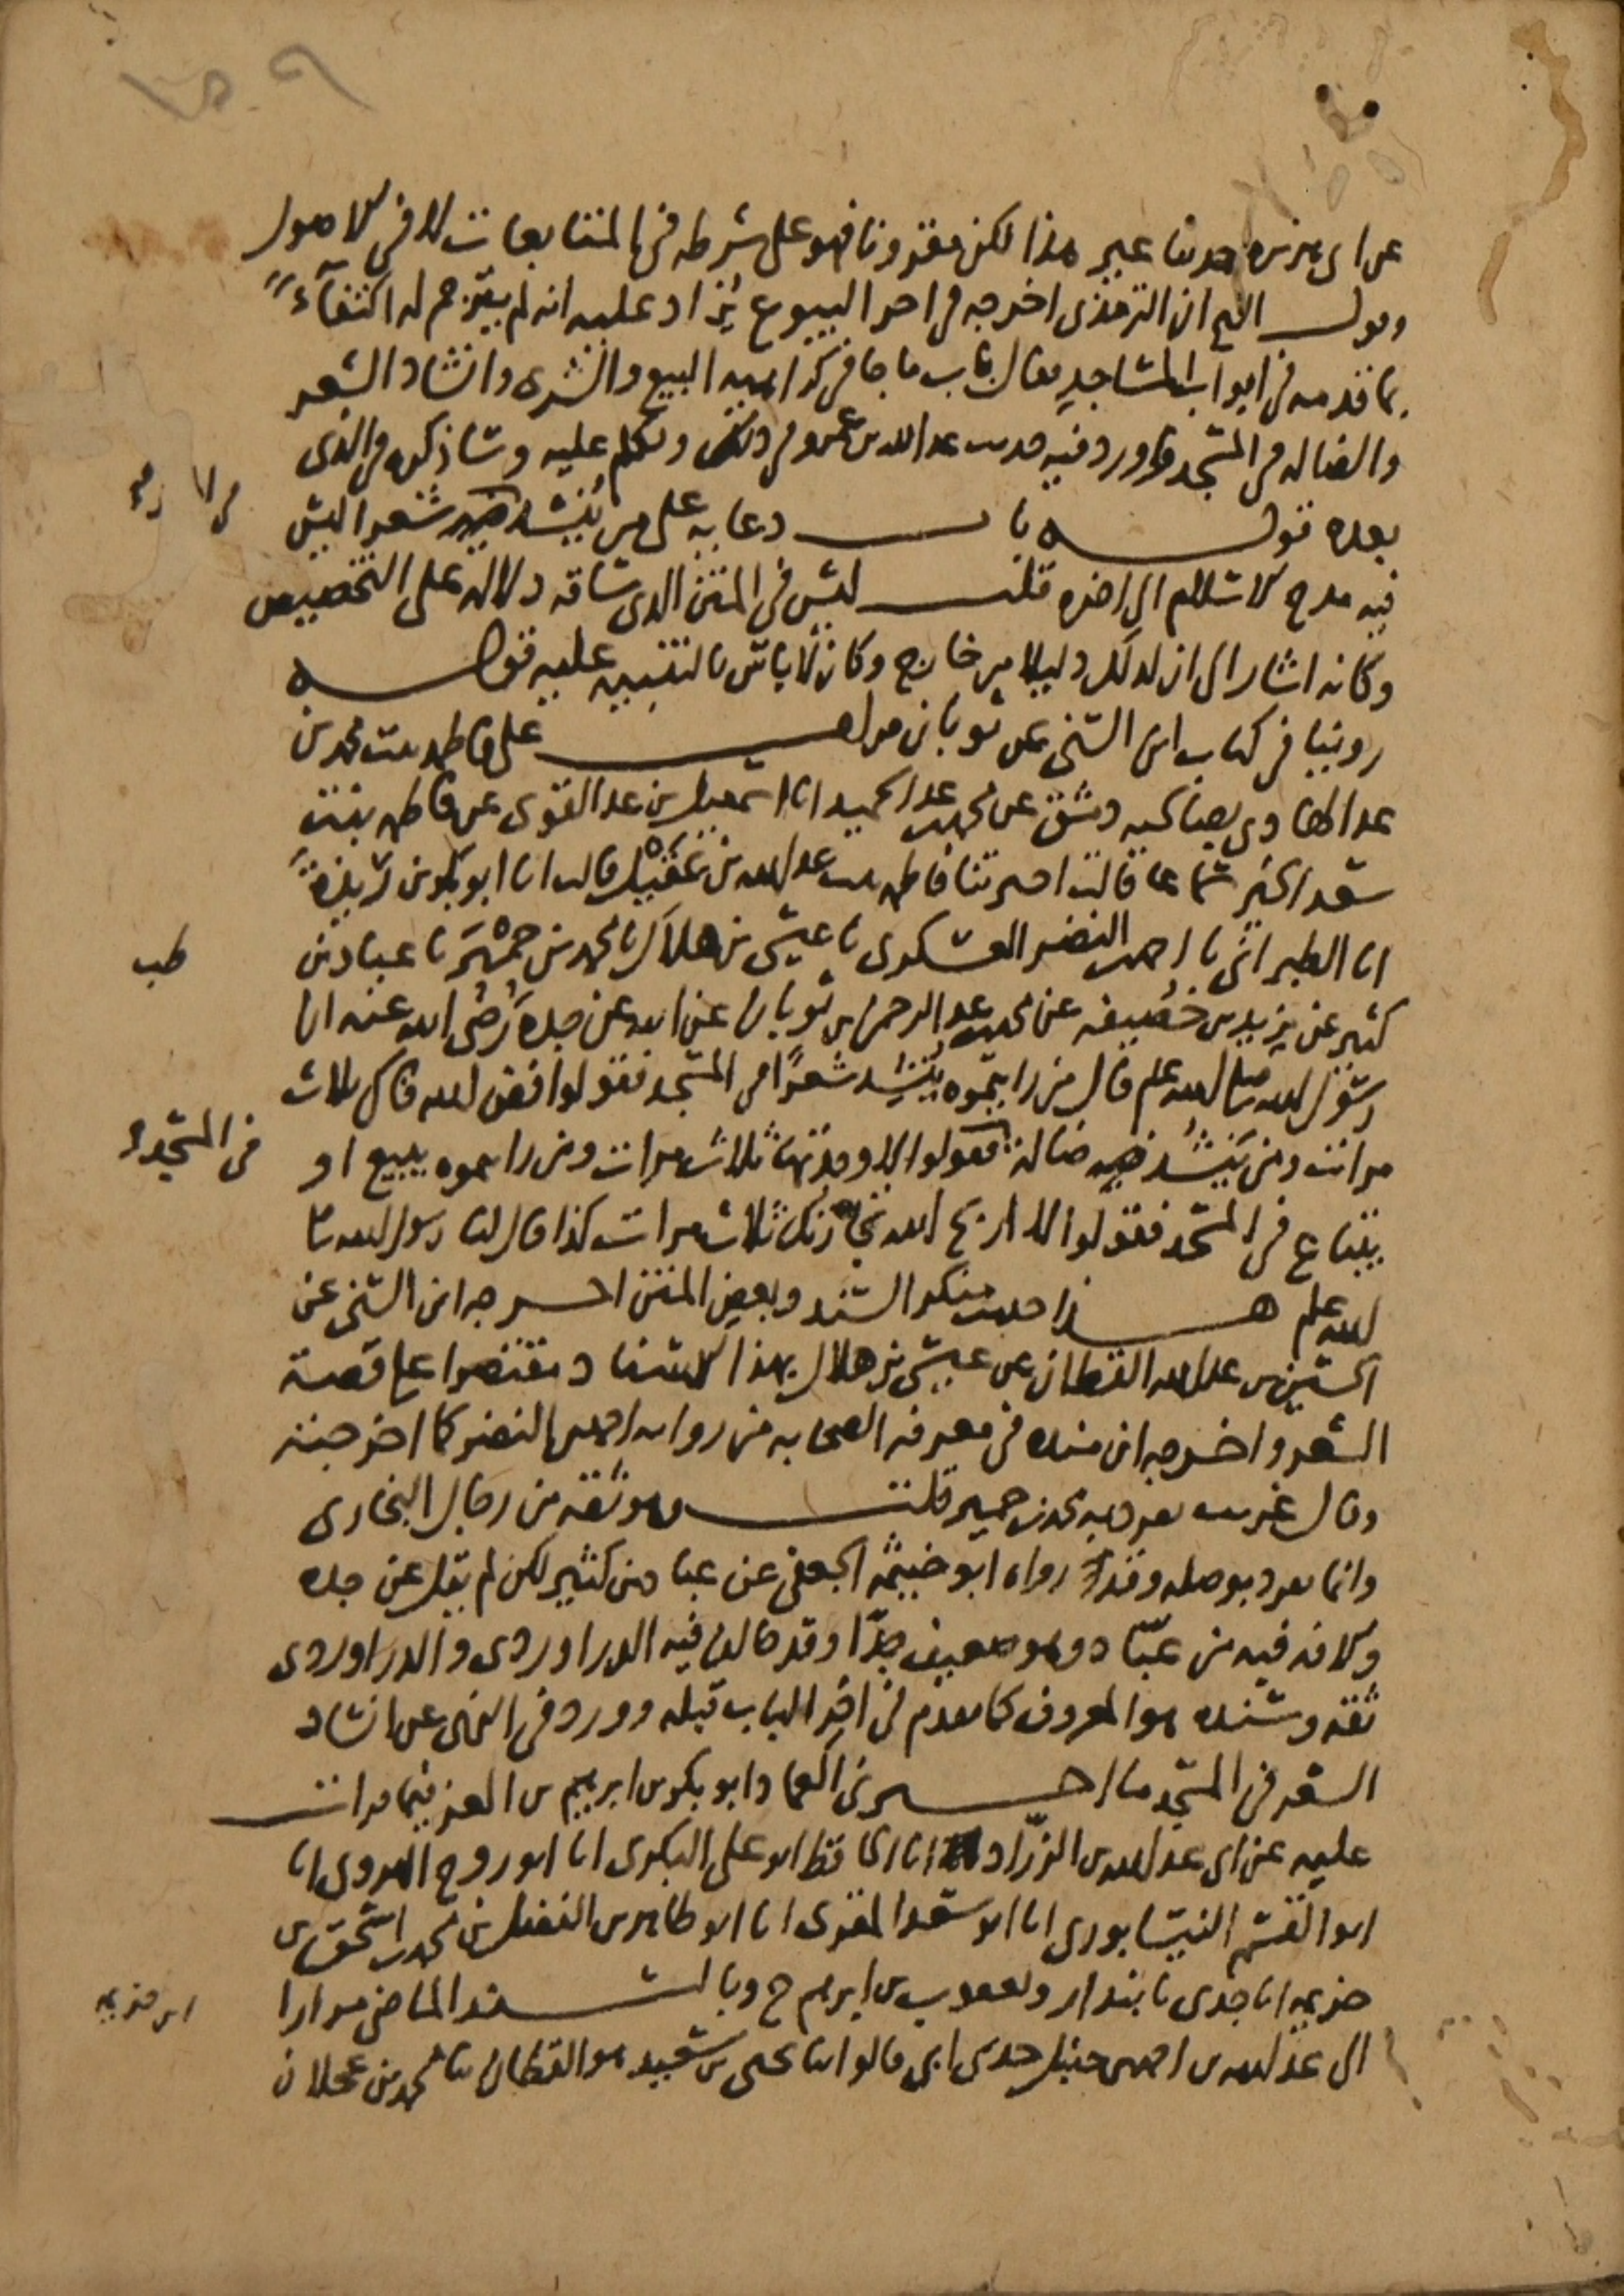 عن ابى هريره حديثا غير هذا لكن مقرونا فهو على شرطه فى المتابعات لا فى الاصول
وقول الشيخ ان الترمذى اخرجه فى اخر البيوع يزاد عليه انه لم يترجم له اكتفاءً
بما قدمه فى ابواب المساجد فقال باب ما جا فى كراهيه البيع والشرى وانشاد الشعر
والضاله فى المسجد واورد فيه حديث عبد الله بن عمرو فى ذلك وتكلم عليه وساذكره فى الذى
بعده قوله باب دعايه على من ينشد فيه شعرا ليس
فيه مدح الاسلام الى اخره قلت ليس فى المتن الذى ساقه دلاله على التخصيص
وكانه اشار الى ان لذلك دليلا من خارج وكان لا باس بالتنبيه عليه قوله
روينا فى كتاب ابن السنى عن ثوبان قرات على فاطمه بنت محمد بن
عبد الهادى بصالحيه دمشق عن محمد بن عبد الحميد انا اسمعيل بن عبد القوى عن فاطمه بنت
سعد الخير سماعا قالت اخبرتنا فاطمه بنت عبد الله بن عقيل قالت انا ابو بكر بن ريذة
انا الطبرانى نا احمد بن النضر العسكرى نا عيسى بن هلال نا محمد بن حمير نا عباد بن
كثير عن يزيد بن خصيفه عن محمد بن عبد الرحمن بن ثوبان عن ابيه عن جده رضى الله عنه ان
رسول الله صلى الله عليه وسلم قال من رايتموه ينشد شعرا فى المسجد فقولوا افض الله فاك ثلاث
مرات ومن ينشد فيه ضالة فقولوا لا وجدتها ثلاث مرات ومن رايتموه يبيع او
يبتاع فى المسجد فقولوا لا اربح الله تجارتك ثلاث مرات كذا قال لنا رسول الله صلى
الله عليه وسلم هذا حديث منكر السند وبعض المتن اخرجه ابن السنى عن
الحسين بن عبد الله القطان عن عيسى بن هلال بهذا الاسناد مقتصرا على قصة
الشعر واخرجه ابن منده فى معرفه الصحابه من روايه احمد بن النضر كما اخرجته
وقال غريب تفرد به محمد بن حمير قلت وهو ثقه من رجال البخارى
وانما تفرد بوصله وقد رواه ابو خيثمه الجعفى عن عباد بن كثير لكن لم يقل عن جده
والافه فيه من عبّاد وهو ضعيف جدّا وقد خالفه فيه الدراوردى والدراوردى
ثقه وسنده هو المعروف كما تقدم فى اخر الباب قبله وورد فى النهى عن انشاد
الشعر فى المسجد ما اخبرنى العماد ابو بكر بن ابرهيم بن العز فيما قرات
عليه عن ابى عبد الله بن الزرّاد انا الحافظ ابو على البكرى انا ابو روح الهروى انا
ابو القسم النيسابورى انا ابو سعد المقرى انا ابو طاهر بن الفضل بن محمد بن اسحق بن
خزيمه انا جدى نا بندار ويعقوب بن ابرهيم ح وبالسند الماضى مرارا
الى عبد الله بن احمد بن حنبل حدثنى ابى قالوا ثنا يحيى بن سعيد هو القطان ثنا محمد بن عجلان
طب
فى المسجد
ابن خزيمه